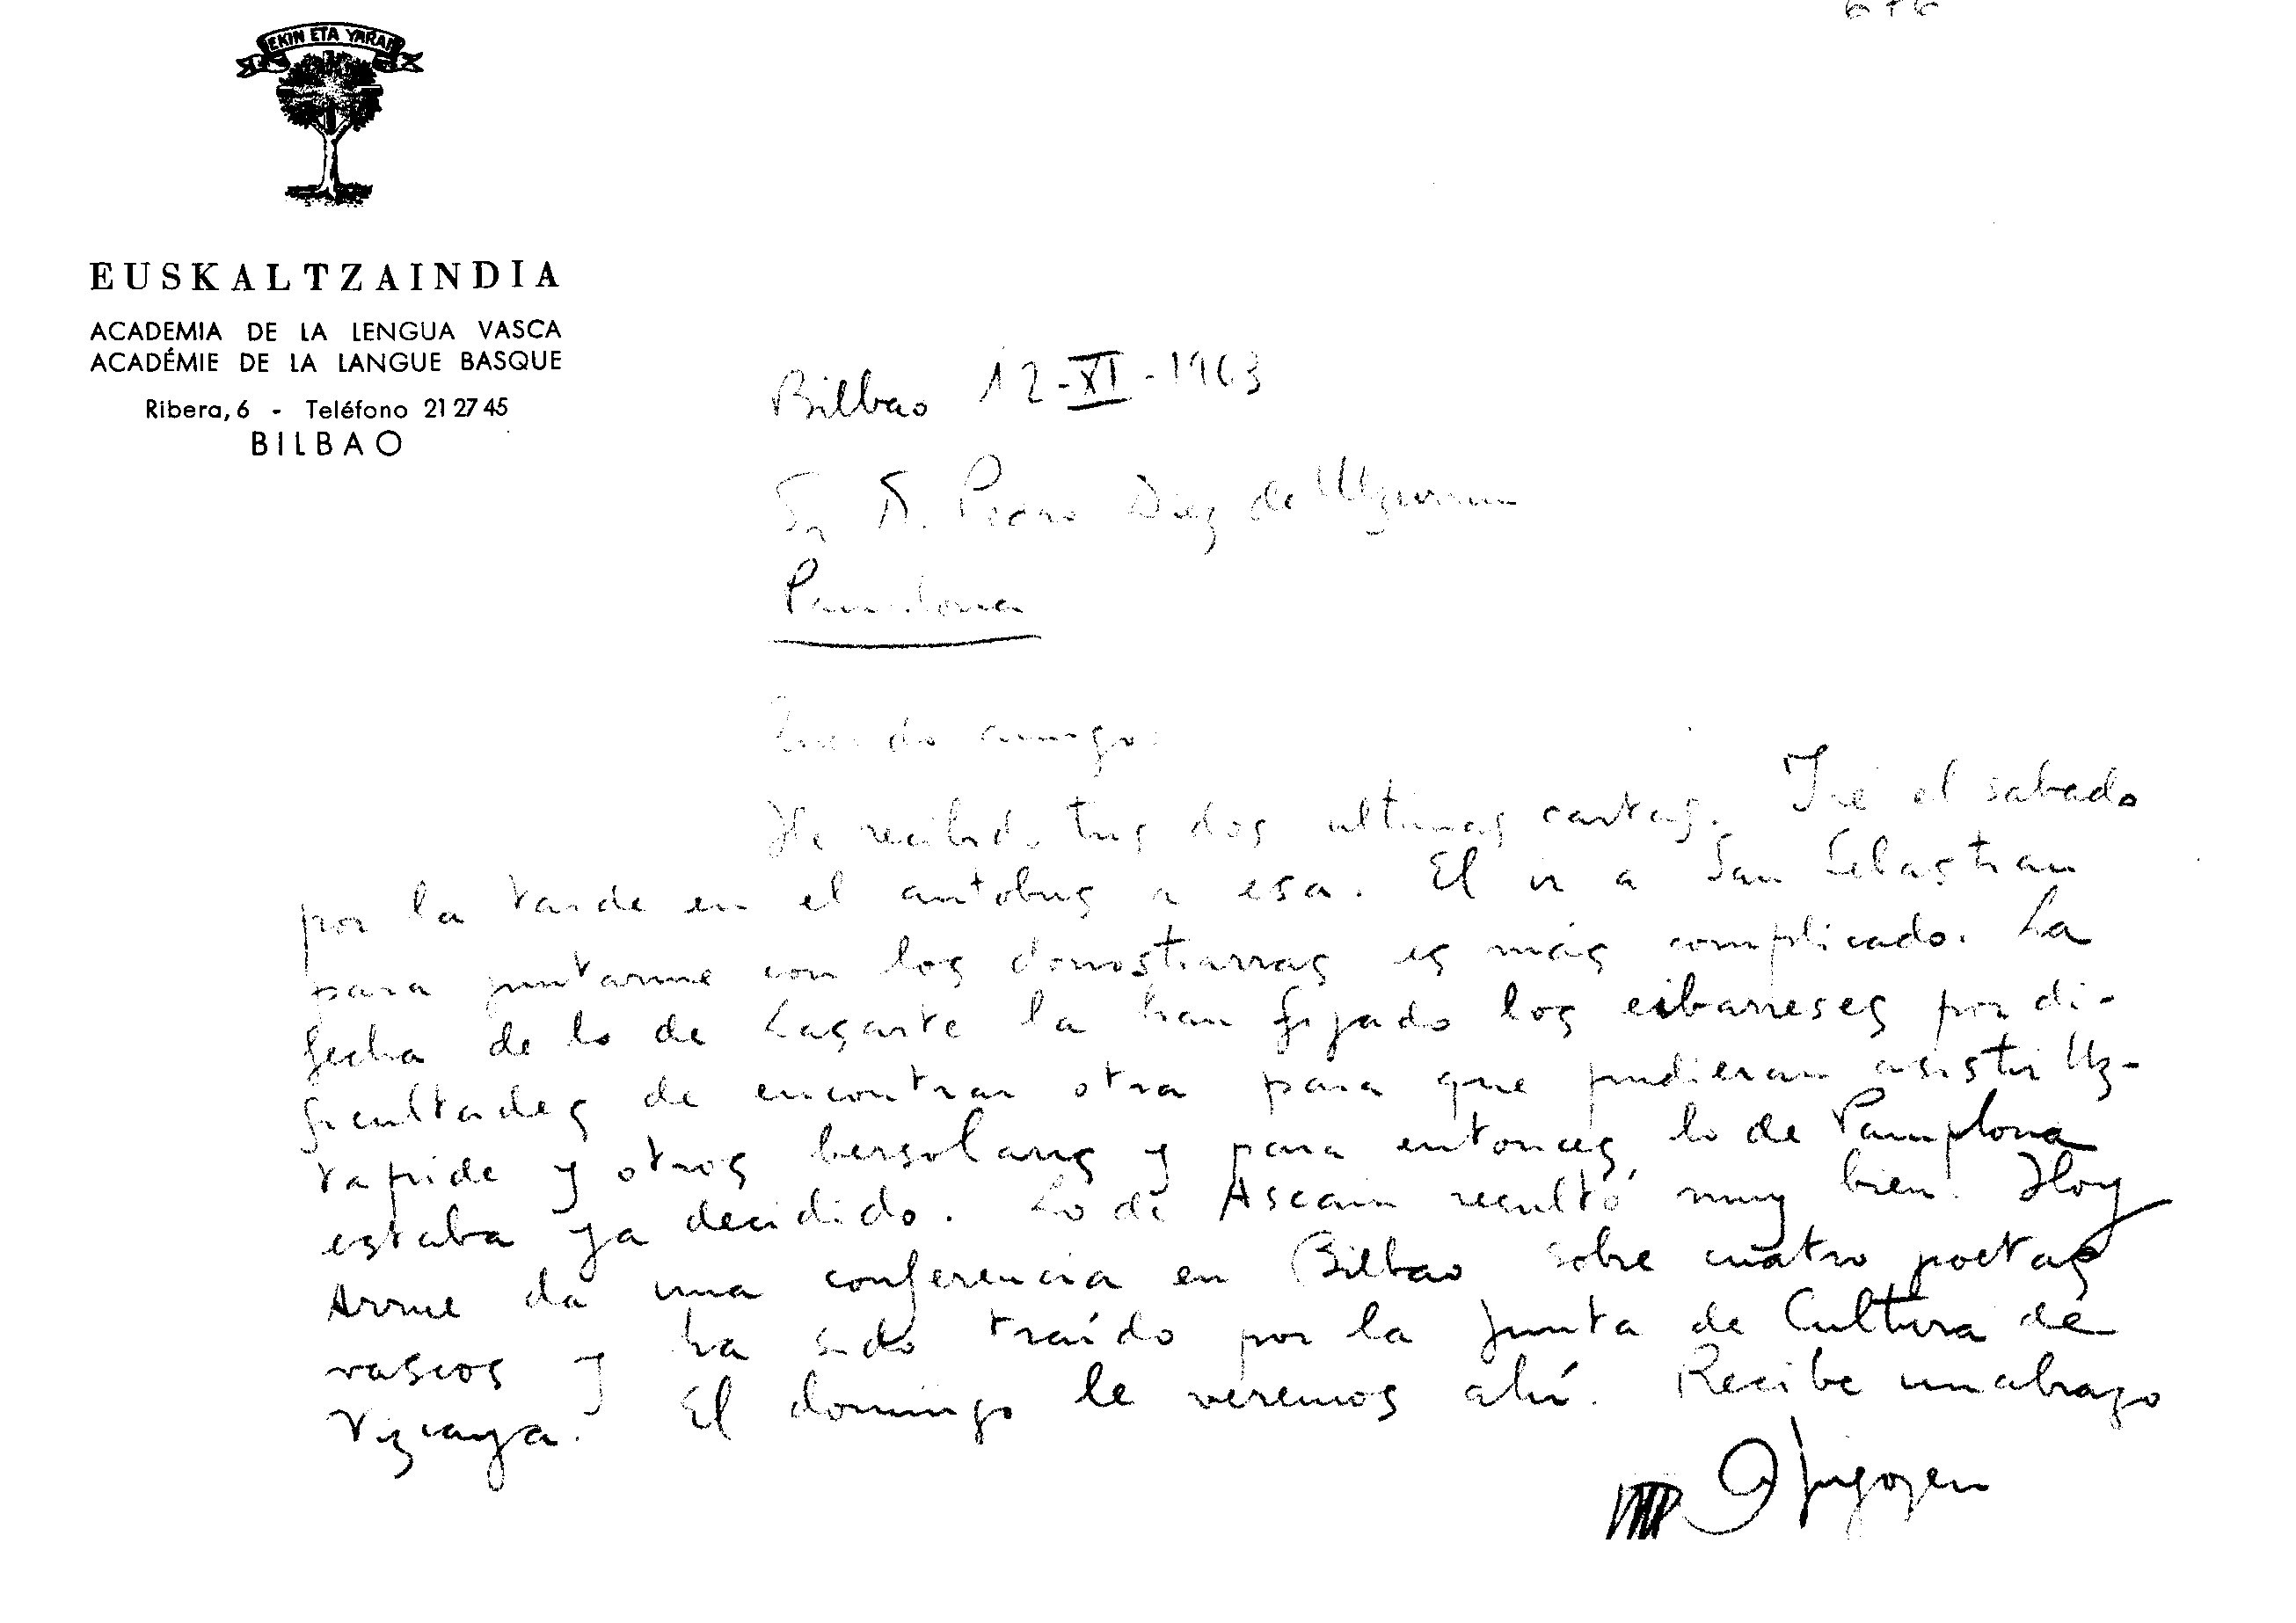 EKIN ETA YARAI
EUSKALTZAINDIA
ACADEMIA DE LA LENGUA VASCA
ACADÉMIE DE LA LANGUE BASQUE
Ribera, 6 - Teléfono 21 27 45
BILBAO
Bilbao 12-XI-1963
Sr D. Pedro Diez de Ulzurrun
Pamplona
Querido amigo:
He recibido tus dos ultimas cartas. Iré el sabado
por la tarde en el autobus a esa. El ir a San Sebastian
para juntarme con los donostiarras es más complicado. La
fecha de lo de Lasarte la han fijado los eibarreses por di-
ficultades de encontrar otra para que pudieran asistir Uz-
tapide y otros bersolaris y para entonces lo de Pamplona
estaba ya decidido. Lo de Ascain resultó muy bien. Hoy
Arrue da una conferencia en Bilbao sobre cuatro poetas
vascos y ha sido traído por la Junta de Cultura de
Vizcaya. El domingo le veremos ahí. Recibe un abrazo
A Irigoyen